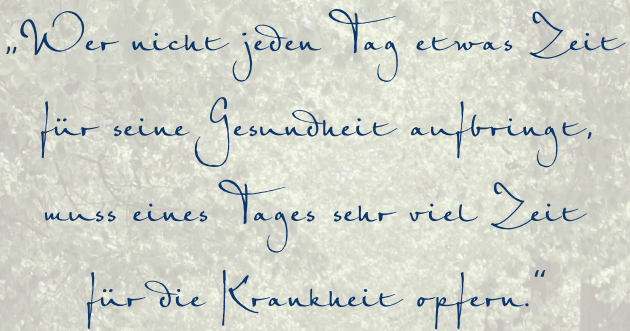 „Wer nicht jeden Tag etwas Zeit
für seine Gesundheit aufbringt,
muss eines Tages sehr viel Zeit
für die Krankheit opfern.“